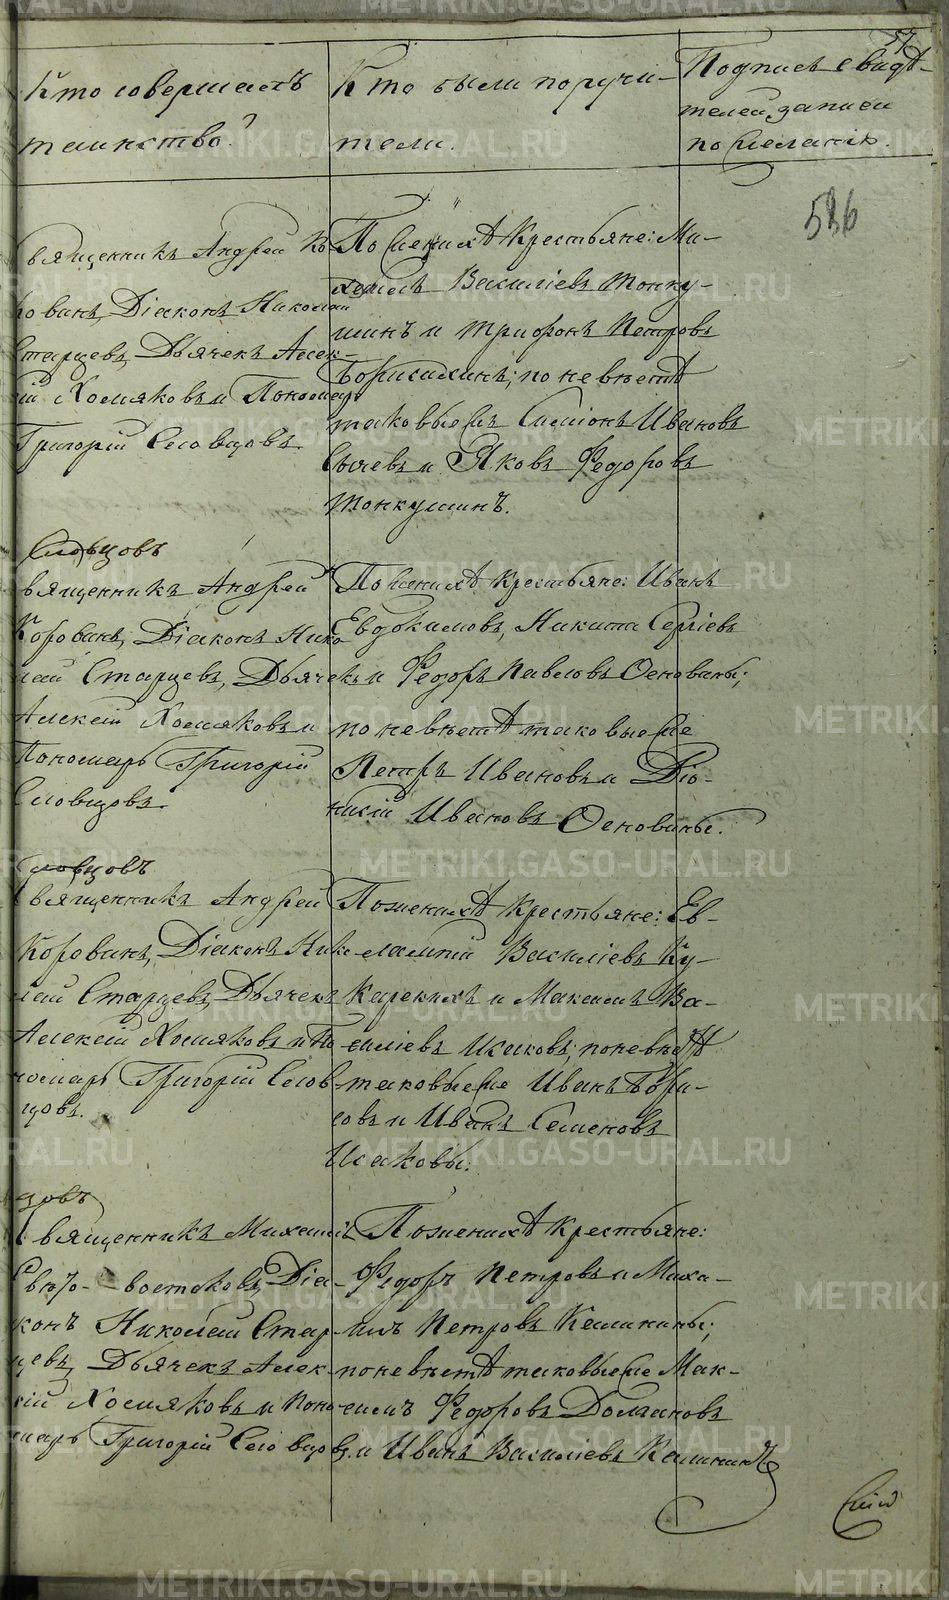 57
Кто совершалъ
таинство?
Кто были поручи-
тели.
Подпись свидѣ-
телей записи
по желанію.
586
Священникъ Андрей Ко-
ровинъ, Діаконъ Николай
Старцевъ, Дьячекъ Алек-
сій Хомяковъ и Пономарь
Григорій Словцовъ.
По женихѣ крестьяне: Ми-
хаилъ Василіевъ Тонку-
шинъ и Трифонъ Петровъ
по невѣстѣ
таковые же Симіонъ Ивановъ
Сычевъ и Яковъ Федоровъ
Тонкушинъ.
Словцовъ
Священникъ Андрей
Коровинъ, Діаконъ Нико-
лай Старцевъ, Дьячекъ
Алексій Хомяковъ и
Пономарь Григорій
Словцовъ.
По женихѣ крестьяне: Иванъ
Евдокимовъ, Никита Сергіевъ
и Федоръ Павловъ Основины;
по невѣстѣ таковые же
Петръ Ивановъ и Діо-
нисій Ивановъ Основины.
Словцовъ
Священникъ Андрей
Коровинъ, Діаконъ Нико-
лай Старцевъ, Дьячекъ
Алексій Хомяковъ и По-
номарь Григорій Слов-
цовъ.
По женихѣ крестьяне: Ев-
лампій Василіевъ
и Максимъ Ва-
силіевъ Исаковъ; по невѣстѣ
таковые же Иванъ Бори-
совъ и Иванъ Семеновъ
Исаковы.
цовъ
Священникъ Михаилъ
Діа-
конъ Николай Стар-
цевъ, Дьячекъ Алек-
сій Хомяковъ и Поно-
марь Григорій Словцовъ.
По женихѣ крестьяне:
Федоръ Петровъ и Миха-
илъ Петровъ Калинины;
по невѣстѣ таковые же Мак-
симъ Федоровъ Долгановъ
и Иванъ Василіевъ Калининъ
METRIKI.GASO-URAL.RU